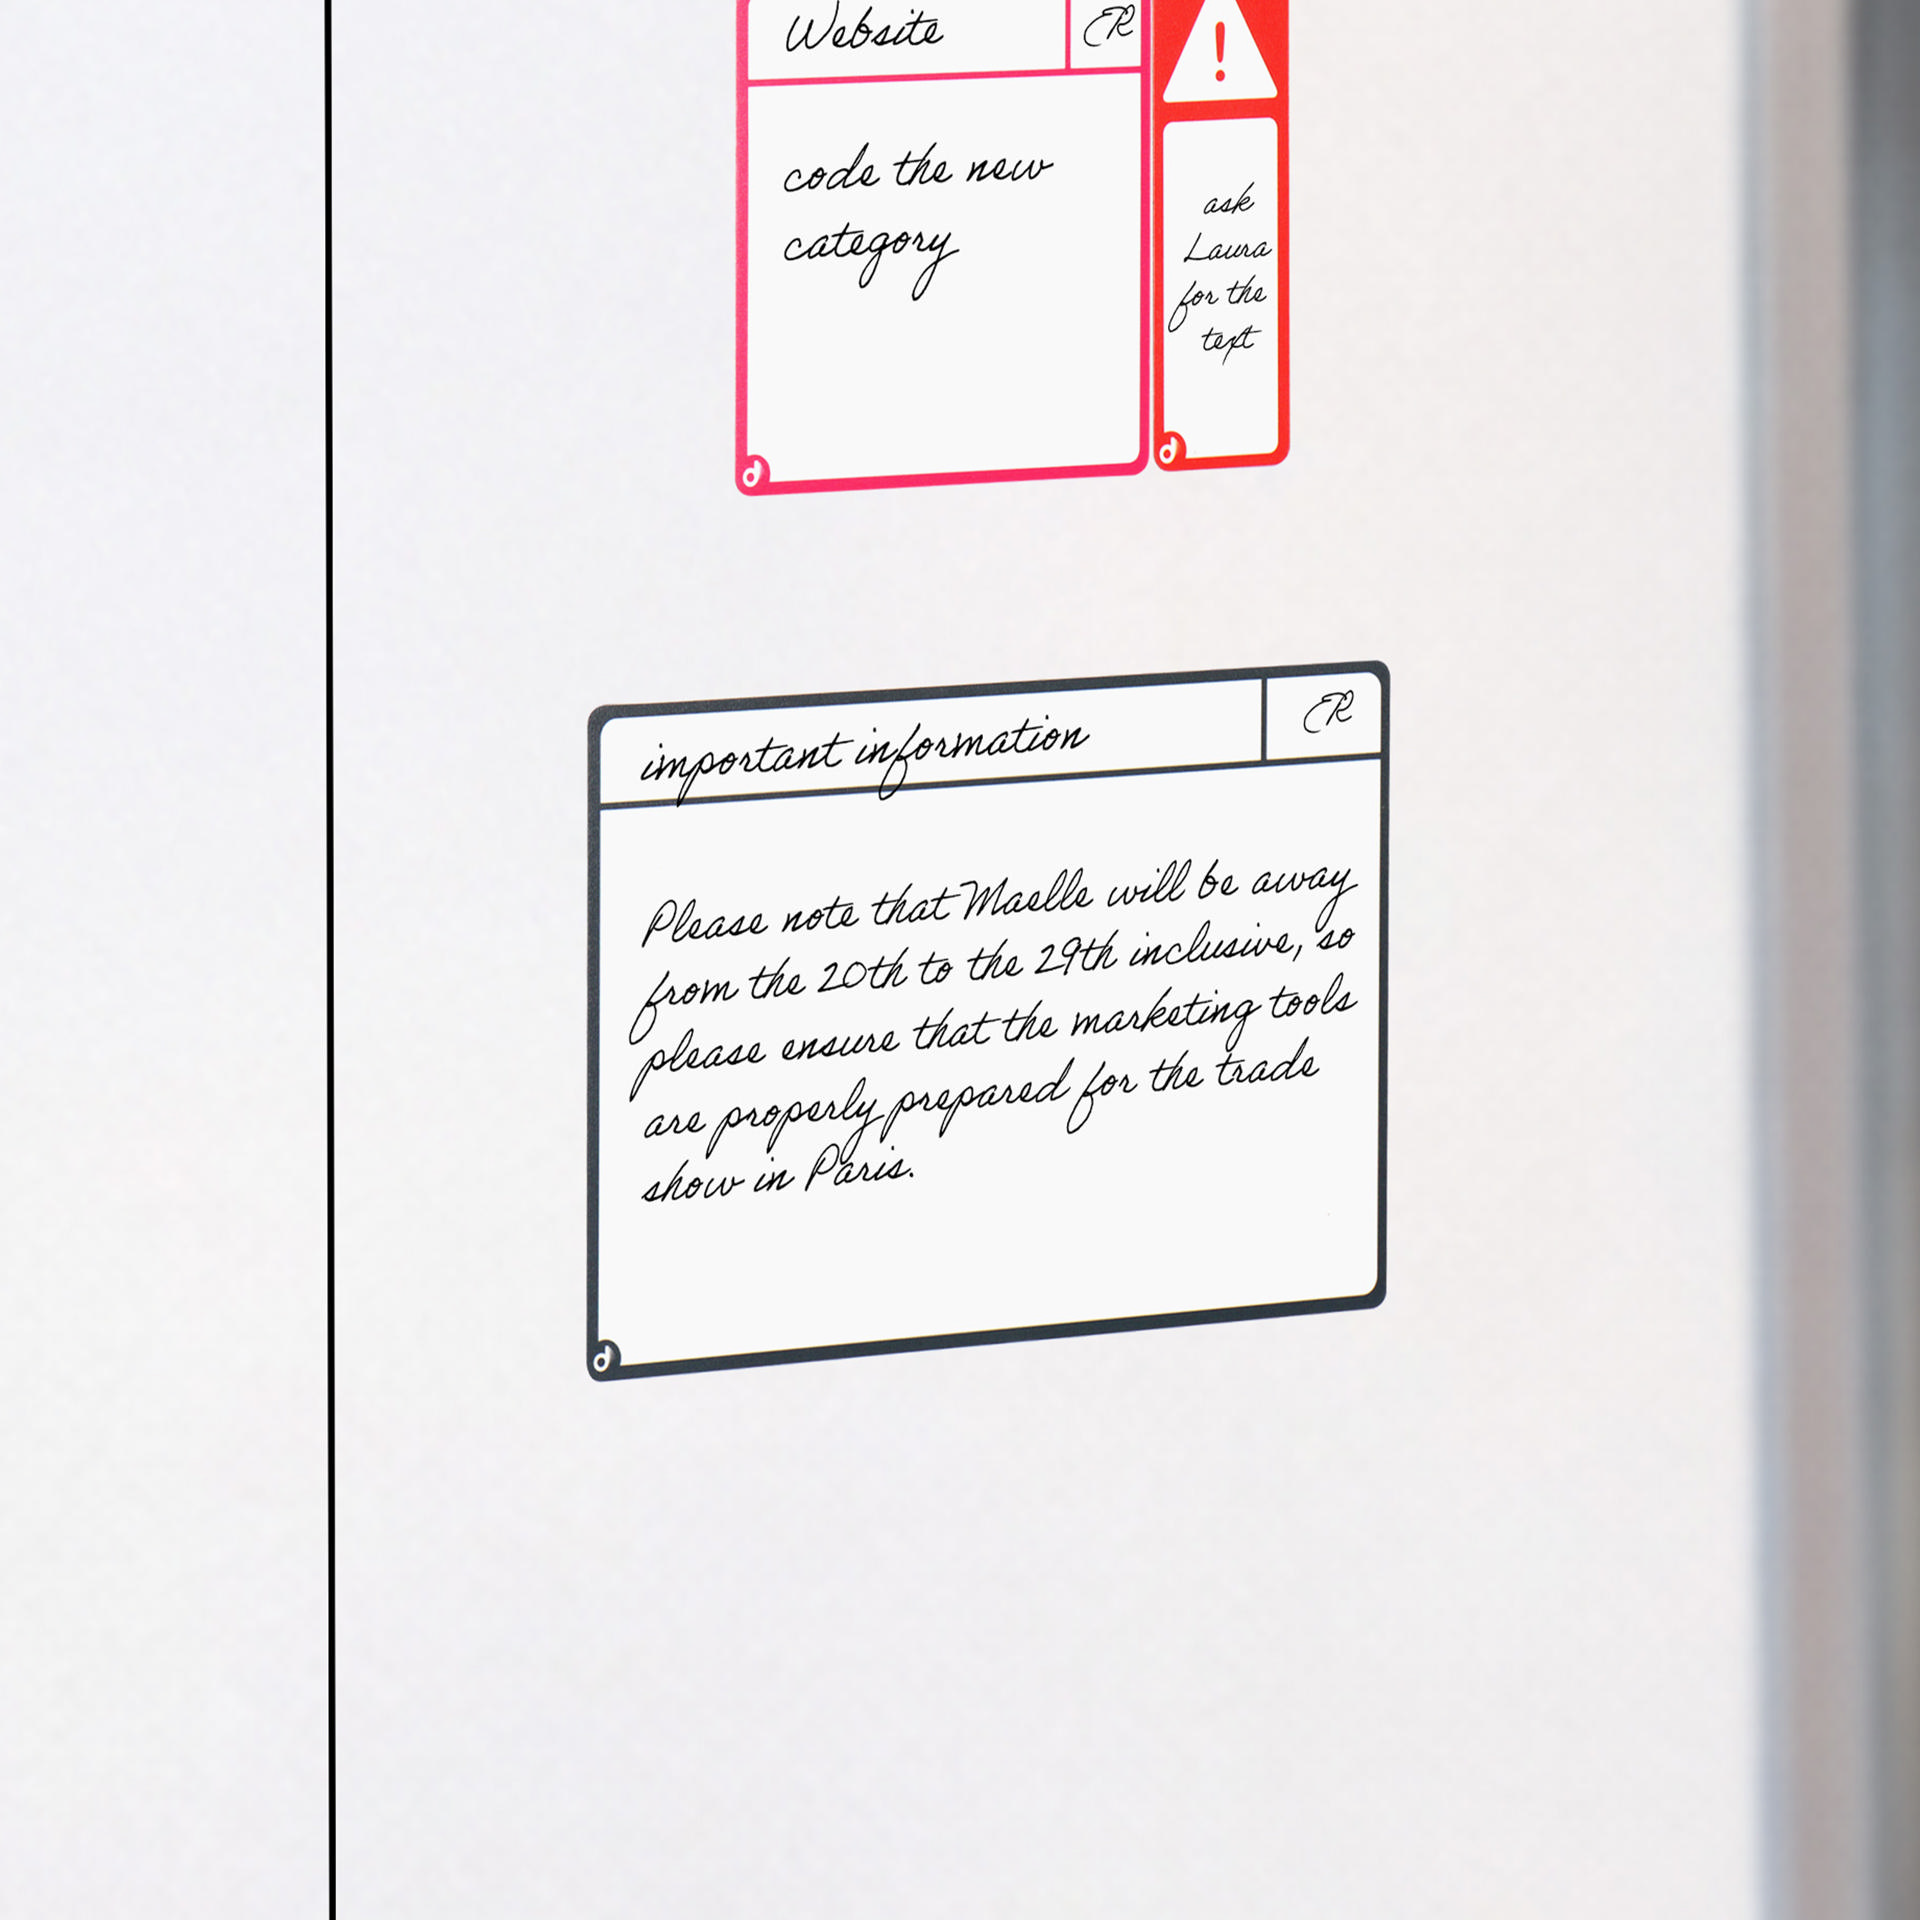 Website
ER
!
code the new
category
ask
Laura
for the
text
d
d
important information
ER
Please note that Maelle will be away
from the 20th to the 29th inclusive, so
please ensure that the marketing tools
are properly prepared for the trade
show in Paris.
d